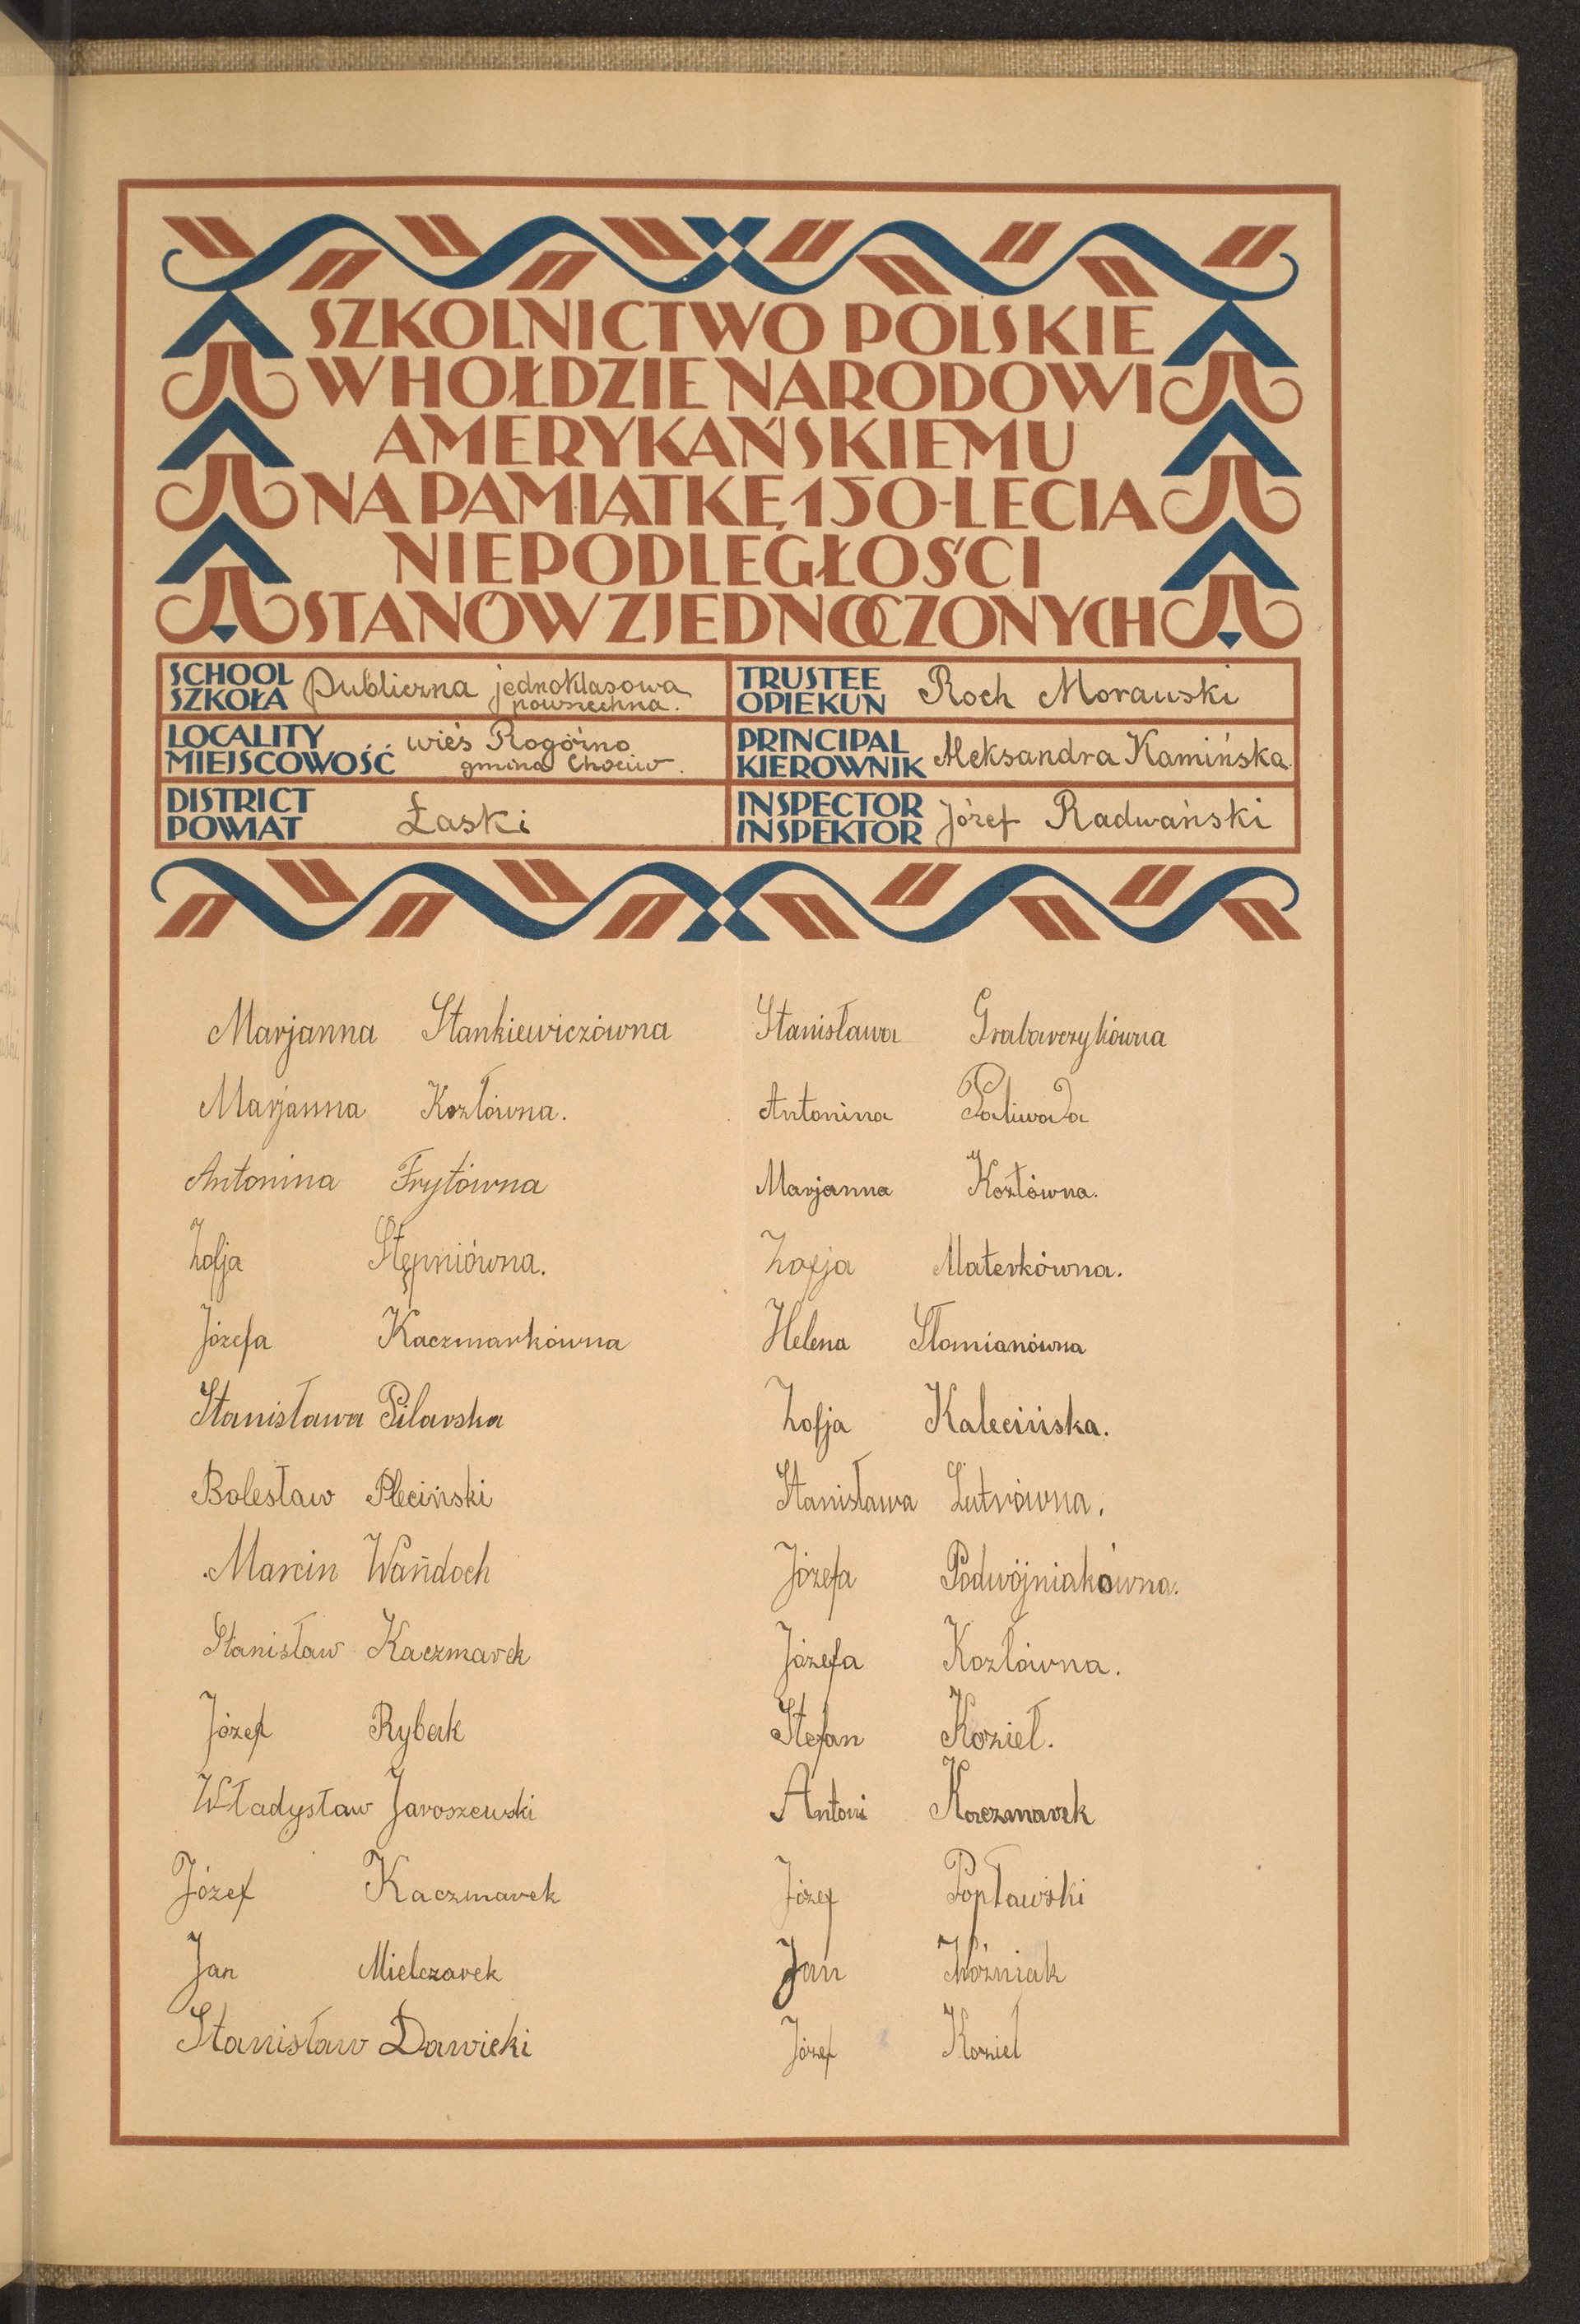 SZKOLNICTWO POLSKIE
W HOŁDZIE NARODOWI
AMERYKAŃSKIEMU
NA PAMIĄTKĘ 150-LECIA
NIEPODLEGŁOŚCI
STANÓW ZJEDNOCZONYCH
SCHOOL
SZKOŁA
publiczna jednoklasowa
powszechna.
TRUSTEE
OPIEKUN
Roch Morawski
LOCALITY
MIEJSCOWOŚĆ
wieś Rogóźno
gmina Chociw.
PRINCIPAL
KIEROWNIK
Aleksandra Kamińska.
DISTRICT
POWIAT
Łaski
INSPECTOR
INSPEKTOR
Józef Radwański
Marjanna Stankiewiczówna
Marjanna Kozłówna.
Antonina Frytówna
Zofja Stępniówna.
Józefa Kaczmarkówna
Stanisława Pilarska
Bolesław Pleciński
Marcin Wańdoch
Stanisław Kaczmarek
Józef Rybak
Władysław Jaroszewski
Józef Kaczmarek
Jan Mielczarek
Stanisław Dawicki
Stanisława Grabarczykówna
Antonina Paliwoda
Marjanna Kozłówna.
Zofja Materkówna.
Helena Słomianówna
Zofja Kalecińska.
Stanisława Lutrówna.
Józefa Podwójniakówna.
Józefa Kozłówna.
Stefan Kozieł.
Antoni Kaczmarek
Józef Popławski
Jan Woźniak
Józef Kozieł